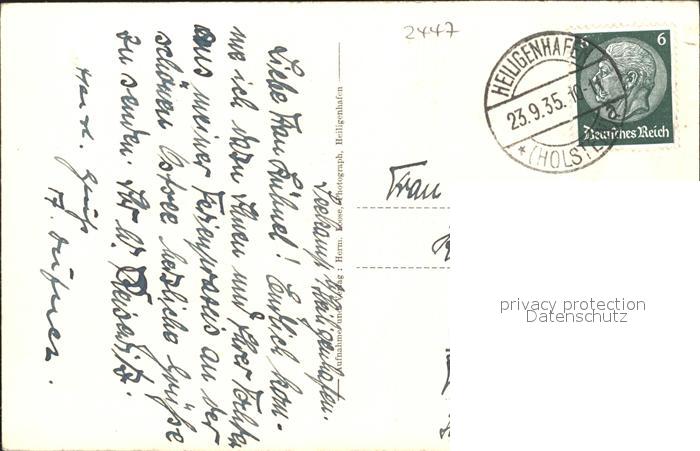 2447
HEILIGENHAFEN
23.9.35.10-11
* (HOLST) a
6
Deutsches Reich
Heiligenhafen.
Liebe Frau Kühnel! Endlich kom-
me ich dazu Ihnen und Ihrer Tochter
aus meiner Ferienpraxis an der
schönen Ostsee herzliche Grüße
zu senden. Ihr
Gruß
Aufnahme und Verlag: Herm. Loose, Photograph, Heiligenhafen
Frau
privacy protection
Datenschutz